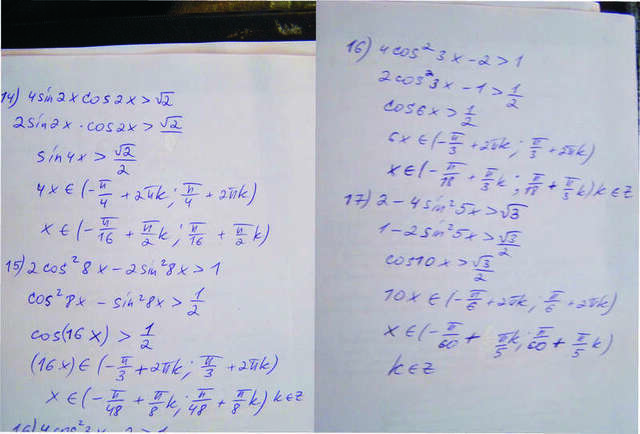 14) 4sin2xcos2x>√2
2sin2x·cos2x>√2
sin4x>√2/2
4x∈(-π/4+2πk; π/4+2πk)
x∈(-π/16+π/2k; π/16+π/2k)
15) 2cos²8x-2sin²8x>1
cos²8x-sin²8x>1/2
cos(16x)>1/2
(16x)∈(-π/3+2πk; π/3+2πk)
x∈(-π/48+π/8k; π/48+π/8k) k∈z
16) 4cos²3x-2>1
16) 4cos²3x-2>1
2cos²3x-1>1/2
cos6x>1/2
6x∈(-π/3+2πk; π/3+2πk)
x∈(-π/18+π/3k; π/18+π/3k) k∈z
17) 2-4sin²5x>√3
1-2sin²5x>√3/2
cos10x>√3/2
10x∈(-π/6+2πk; π/6+2πk)
x∈(-π/60+π/5k; π/60+π/5k)
k∈z